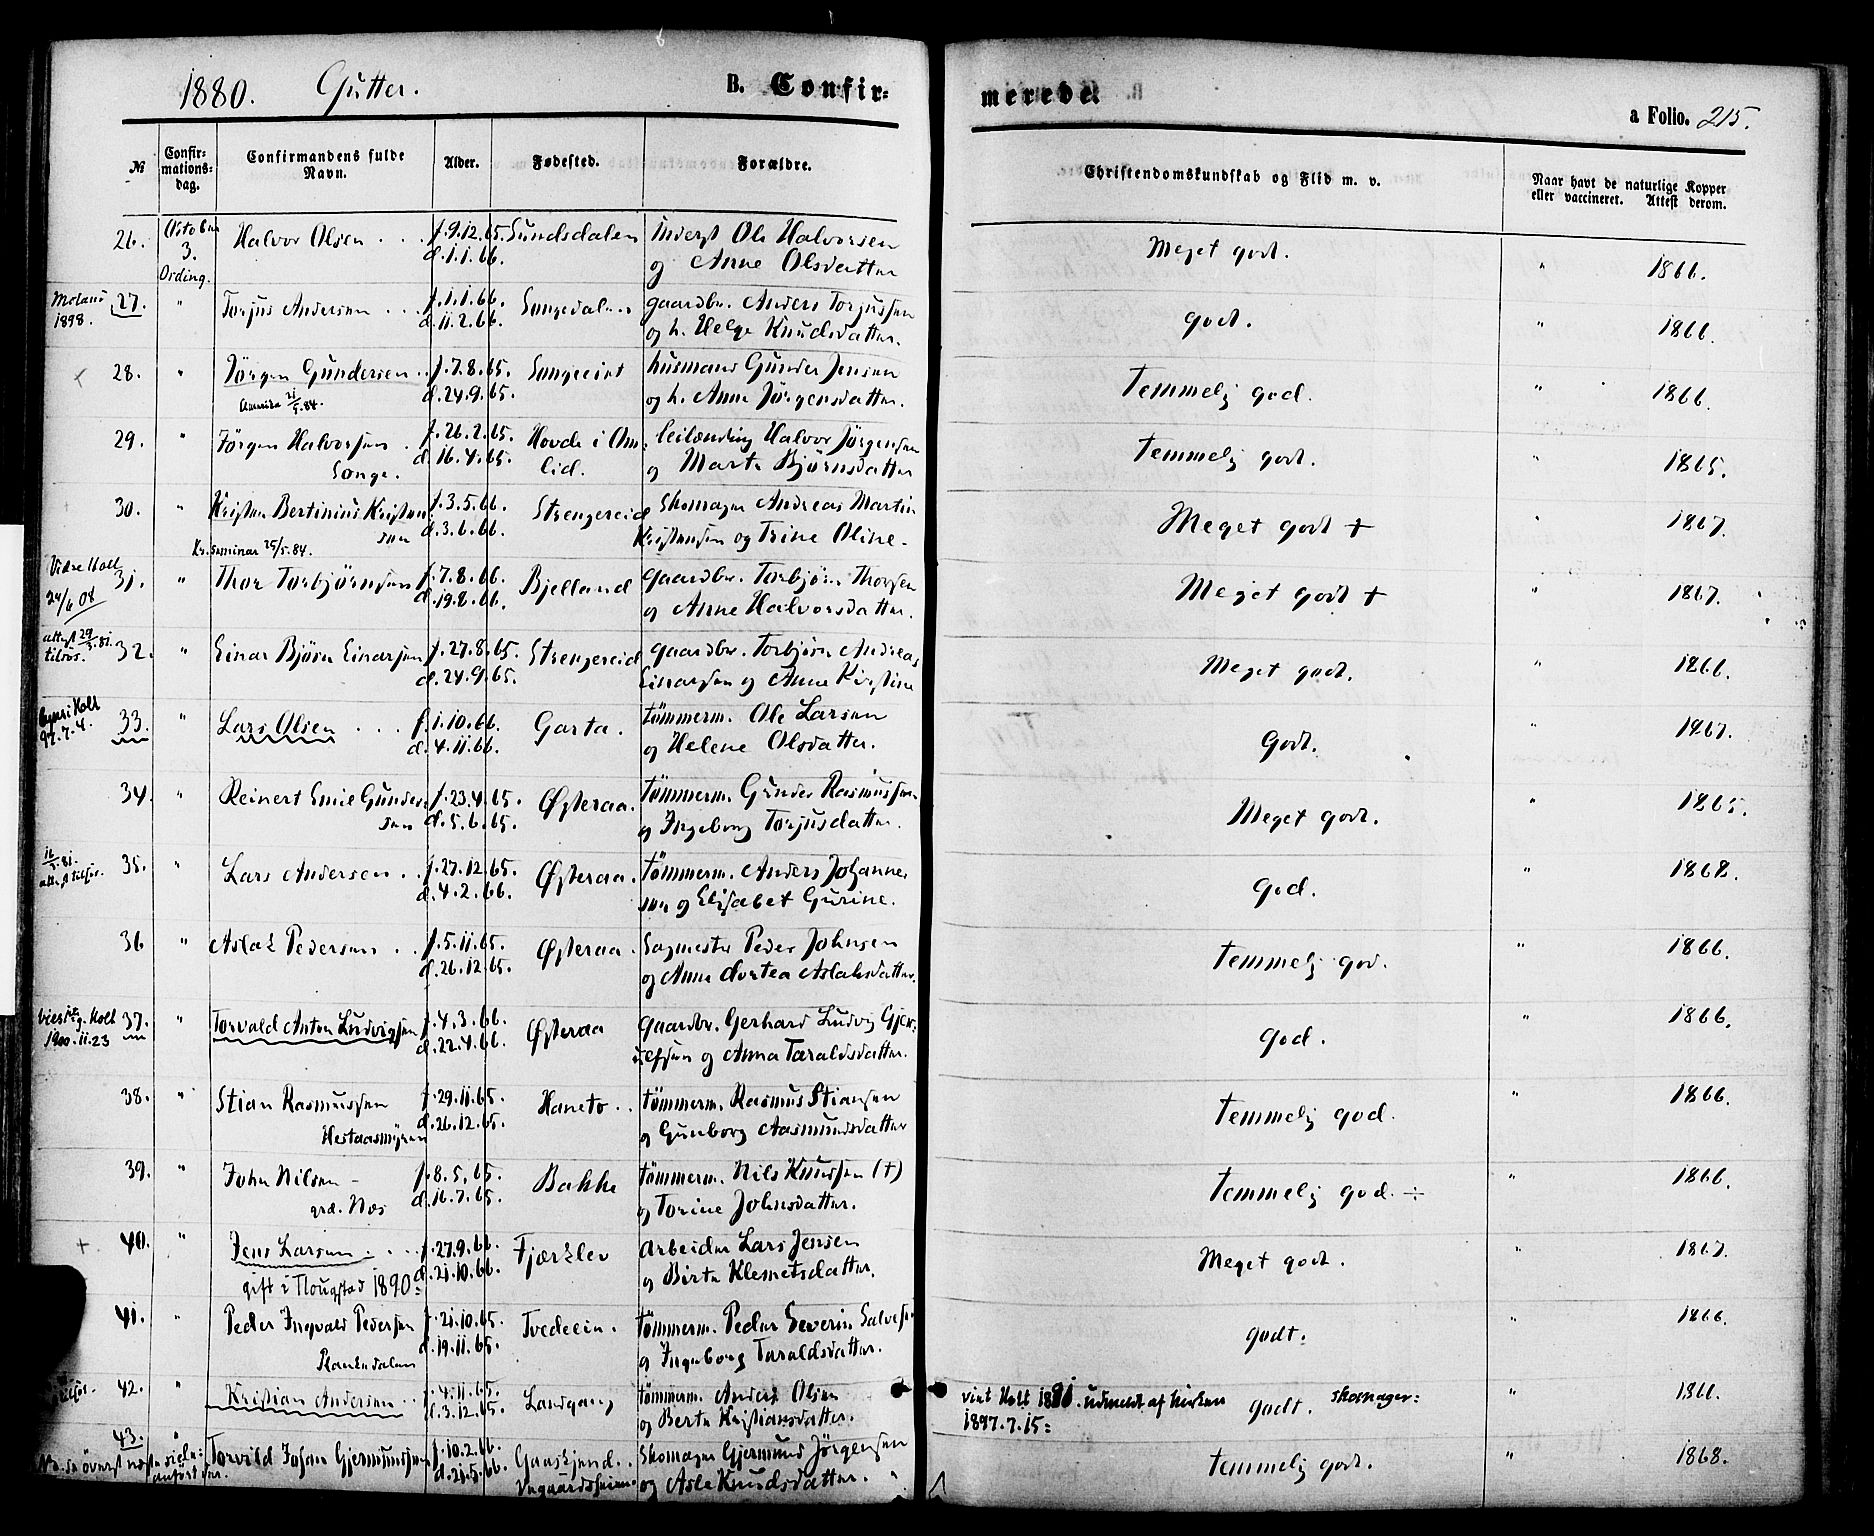 1880. Gutter. B. Confir-
merede. a Folio. 215.
№ Confir-mations-dag. Confirmandens fulde Navn. Alder. Fødested. Forældre.
Christendomskundskab og Flid m. v. Naar havt de naturlige Kopper eller vaccineret. Attest derom.
26. Oktober Halvor Olsen . . . f. 9.12.65. Sundsdalen Inderst Ole Halvorsen Meget godt. " 1866.
3. d. 1.1.66. og Anne Olsdatter
Osding.
27. " Torjus Andersen . . . f. 1.1.66. Songedalen gaardbr. Anders Torjussen godt. " 1866.
1898. d. 11.2.66. og h. Helge Knudsdatter.
28. " Jörgen Gundersen . . f. 7.8.65. Songeeiet husmand Gunder Jensen Temmelig god. " 1866.
Amerika 21/5.84. d. 24.9.65. og h. Anne Jörgensdatter.
29. " Jörgen Halvorsen . f. 26.2.65. Hovde i Om- leilænding Halvor Jörgensen Temmelig godt. " 1865.
Songe. d. 16.4.65. lid. og Marte Bjørnsdatter
30. " Kristen Bertinius Kristen f. 3.5.66. Strengereid Skomager Andreas Martin Meget godt + " 1867.
sen d. 3.6.66. Kristensen og Trine Oline.
Kr. seminar 25/5.84.
Vidre Holt 31. " Thor Torbjørnsen f. 7.8.66. Bjelland gaardbr. Torbjørn Thorsen Meget godt + " 1867.
24/6 08 d. 19.8.66. og Anne Halvorsdatter.
32. " Einar Bjørn Einarsen f. 27.8.65. Strengereid gaardbr. Torbjørn Andreas Meget godt. " 1866.
d. 24.9.65. Einarsen og Anne Kirstine
33. " Lars Olsen . . . f. 1.10.66. Garta. tömmerm. Ole Larsen Godt. " 1867.
97.7.4. d. 4.11.66. og Helene Olsdatter.
34. " Reinert Emil Gunder f. 23.4.65. Østeraa. tömmerm. Gunder Rasmussen Meget godt. " 1865.
sen d. 5.6.65. og Ingeborg Torjusdatter.
35. " Lars Andersen . . f. 27.12.65. Østeraa. tömmerm. Anders Johannes God. " 1868.
d. 4.2.66. sen og Elisabet Gurine.
36 " Aslak Pedersen . . f. 5.11.65. Østeraa. Sagmester Peder Johnsen Temmelig god. " 1866.
d. 26.12.65. og Anne Dortea Aslaksdatter.
37. " Torvald Anton Ludvigsen f. 4.3.66. Østeraa gaardbr. Gerhard Ludvig Gjer- God. " 1866.
1900.11.23 d. 22.4.66. ulfsen og Anna Taraldsdatter.
38. " Stian Rasmussen f. 29.11.65. Haneto . . tömmerm. Rasmus Stiansen Temmelig god. " 1866.
Hestaasmyren d. 26.12.65. og Gunborg Aasmundsdatter
39. " John Nilsen - f. 8.5.65. Bakke tömmerm. Nils Knudsen (+) Temmelig god. ÷ " 1866.
grd. Næs d. 16.7.65. og Torine Johnsdatter.
+ 40. " Jens Larsen . . . f. 27.9.66. Fjærklev Arbeider Lars Jensen Meget godt. " 1867.
gift i Tlougstad 1890 = d. 21.10.66. og Birte Klemetsdatter.
41. " Peder Ingvald Pedersen f. 21.10.65. Tvedeein. tömmerm. Peder Severin Salves- godt. " 1866.
Plankedalen d. 19.11.65. og Ingeborg Taraldsdatter.
42. " Kristian Andersen f. 4.11.65. Landgang tömmerm. Anders Olsen viet Holt 1891. udmeldt af kirken godt. Skomager: " 1866.
d. 3.12.65. og Berte Kristiansdatter. 1897.7.15 =
43. " Torvild Johan Gjermundsen f. 10.2.66. Gaaskjend. . Skomager Gjermund Jörgensen Temmelig godt. " 1868.
d. 21.5.66. og Asle Knudsdatter.